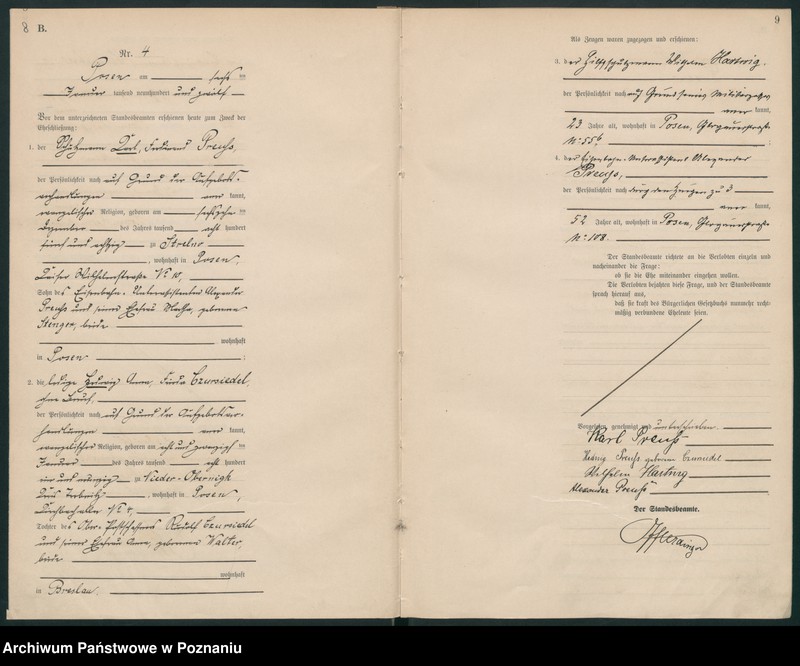 8 B.
Nr. 4
Posen am sechs ten
Januar tausend neunhundert und zwölf
Vor dem unterzeichneten Standesbeamten erschienen heute zum Zweck der
Eheschließung:
1. der Schutzmann Karl, Ferdinand Preuß,
der Persönlichkeit nach auf Grund der Aufgebots-
verhandlungen kannt,
evangelischer Religion, geboren am sechszehn ten
Dezember des Jahres tausend acht hundert
fünf und achtzig zu Strelno
, wohnhaft in Posen,
Kaiser Wilhelmstraße No
Sohn des Eisenbahn-Unterassistenten Alexander
Preuß und seiner Ehefrau geborenen
Stenger, beide
wohnhaft
in Posen ;
2. die ledige Hedwig Anna, Czurviedel,
ohne Beruf,
der Persönlichkeit nach auf Grund der Aufgebotsver-
handlungen kannt,
evangelischer Religion, geboren am acht und zwanzigsten
Januar des Jahres tausend acht hundert
und zu Nieder-Obernigk
Kreis Trebnitz , wohnhaft in Posen,
No 4,
Tochter des Ober-Postschaffners Rudolf Czurviedel
und seiner Ehefrau Anna, geborenen Walter,
beide
wohnhaft
in Breslau.
9
Als Zeugen waren zugezogen und erschienen:
3. der Hilfsschutzmann Wilhelm Hartwig.
der Persönlichkeit nach auf Grund seines Militärpasses
kannt,
23 Jahre alt, wohnhaft in Posen, Glogauerstraße
No 55b ;
4. der Eisenbahn-Unterassistent Alexander
Preuß,
der Persönlichkeit nach durch den Zeugen zu 3
kannt,
52 Jahre alt, wohnhaft in Posen, Glogauerstraße
No 108.
Der Standesbeamte richtete an die Verlobten einzeln und
nacheinander die Frage:
ob sie die Ehe miteinander eingehen wollen.
Die Verlobten bejahten diese Frage, und der Standesbeamte
sprach hierauf aus,
daß sie kraft des Bürgerlichen Gesetzbuchs nunmehr recht-
mäßig verbundene Eheleute seien.
Vorgelesen, genehmigt und unterschrieben.
Karl Preuß
Hedwig Preuß geborene Czurviedel
Wilhelm Hartwig
Alexander Preuß
Der Standesbeamte.
Archiwum Państwowe w Poznaniu